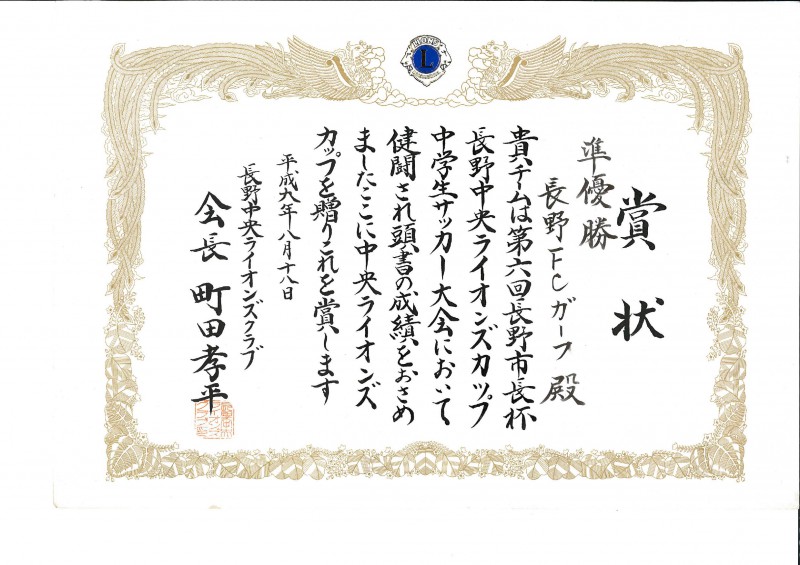 賞状
準優勝
長野FCガーフ殿
貴チームは第六回長野市長杯
長野中央ライオンズカップ
中学生サッカー大会において
健闘され頭書の成績をおさめ
ましたここに中央ライオンズ
カップを贈りこれを賞します
平成九年八月十八日
長野中央ライオンズクラブ
会長 町田孝平
L